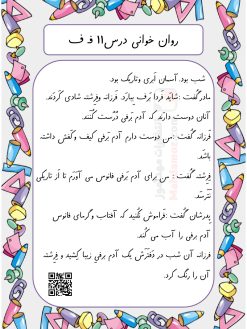 روان خوانی درس۱۱ فـ ف
شب بود. آسمان ابری و تاریک بود.
مادر گفت : شاید فردا برف ببارد. فرزانه و فرشته شادی کردند.
آنان دوست دارند که آدم برفی درست کنند.
فرزانه گفت : من دوست دارم آدم برفی کیف و کفش داشته
باشد.
فرشته گفت : من برای آدم برفی فانوس می آورم تا از تاریکی
نترسد.
پدرشان گفت : فراموش نکنید که آفتاب و گرمای فانوس
آدم برفی را آب می کند.
فرزانه آن شب در دفترش یک آدم برفی زیبا کشید و فرشته
آن را رنگ کرد.